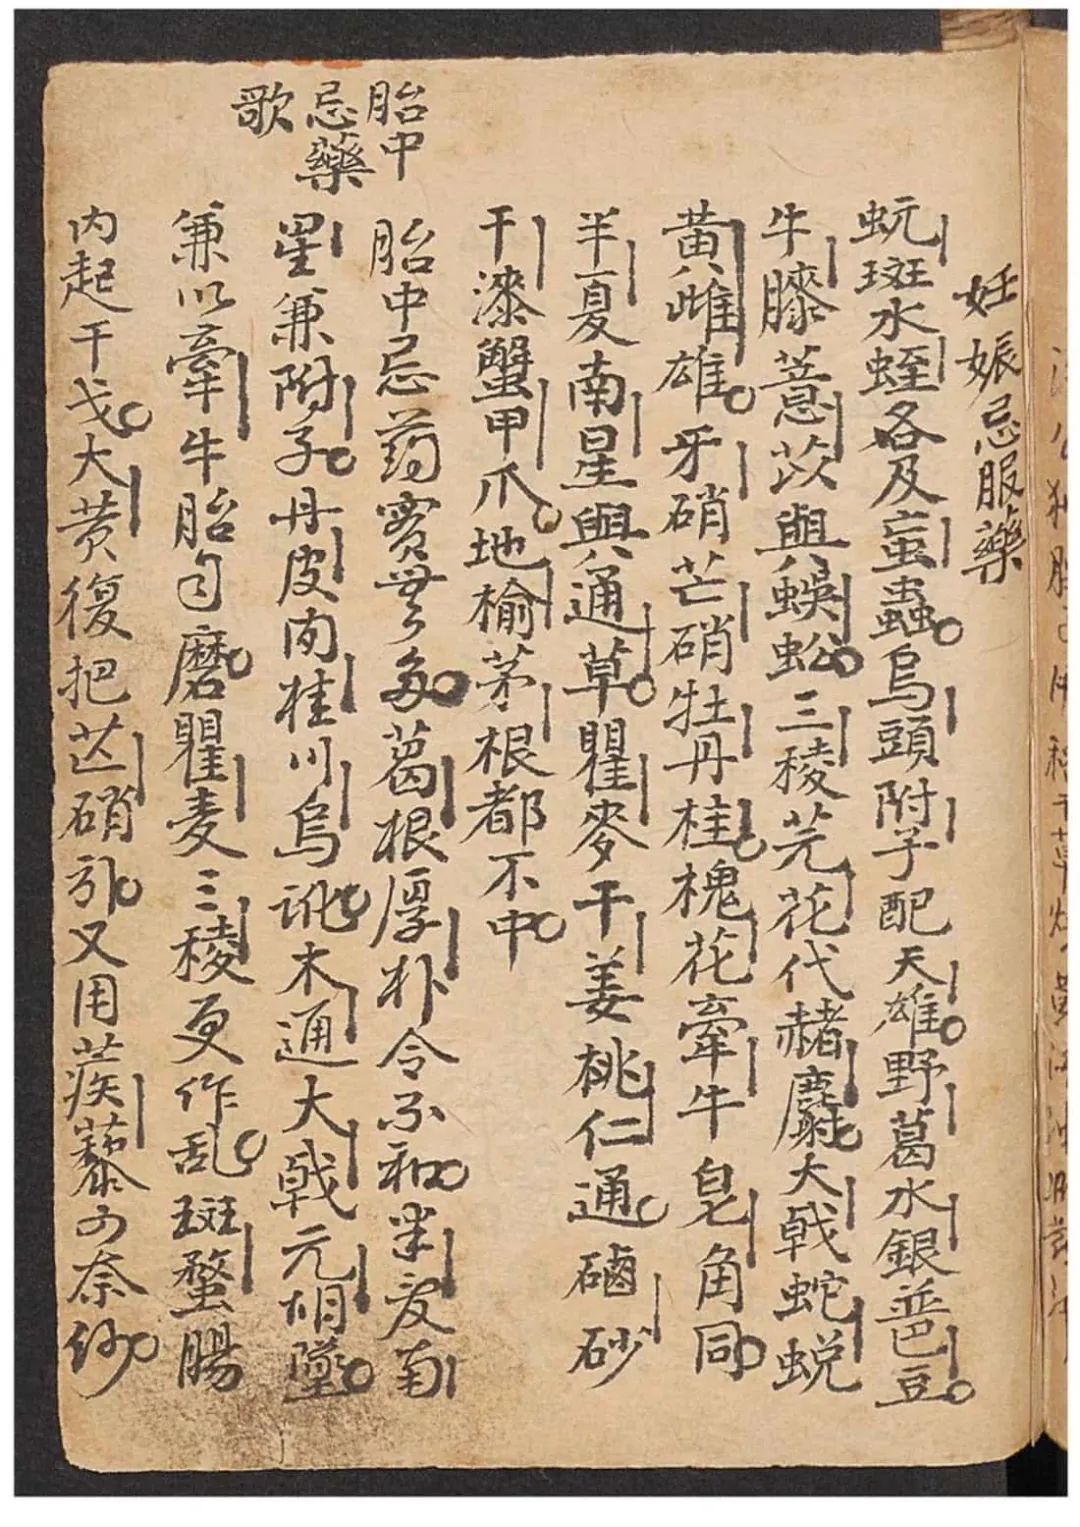 妊娠忌服藥
蚖斑水蛭各及䖟蟲烏頭附子配天雄野葛水銀並巴豆
牛膝薏苡與蜈蚣三稜芫花代赭麝大戟蛇蛻
黃雌雄牙硝芒硝牡丹桂槐花牽牛皂角同
半夏南星與通草瞿麥干姜桃仁通硇砂
干漆蟹甲爪地榆茅根都不中
胎中
忌藥
歌
胎中忌药實無多葛根厚朴令不和半夏南
星兼附子丹皮肉桂川烏訛木通大戟元胡墜
兼以牽牛胎自磨瞿麦三稜更作乱斑蝥腸
内起干戈大黄復把芒硝引又用蒺藜可奈